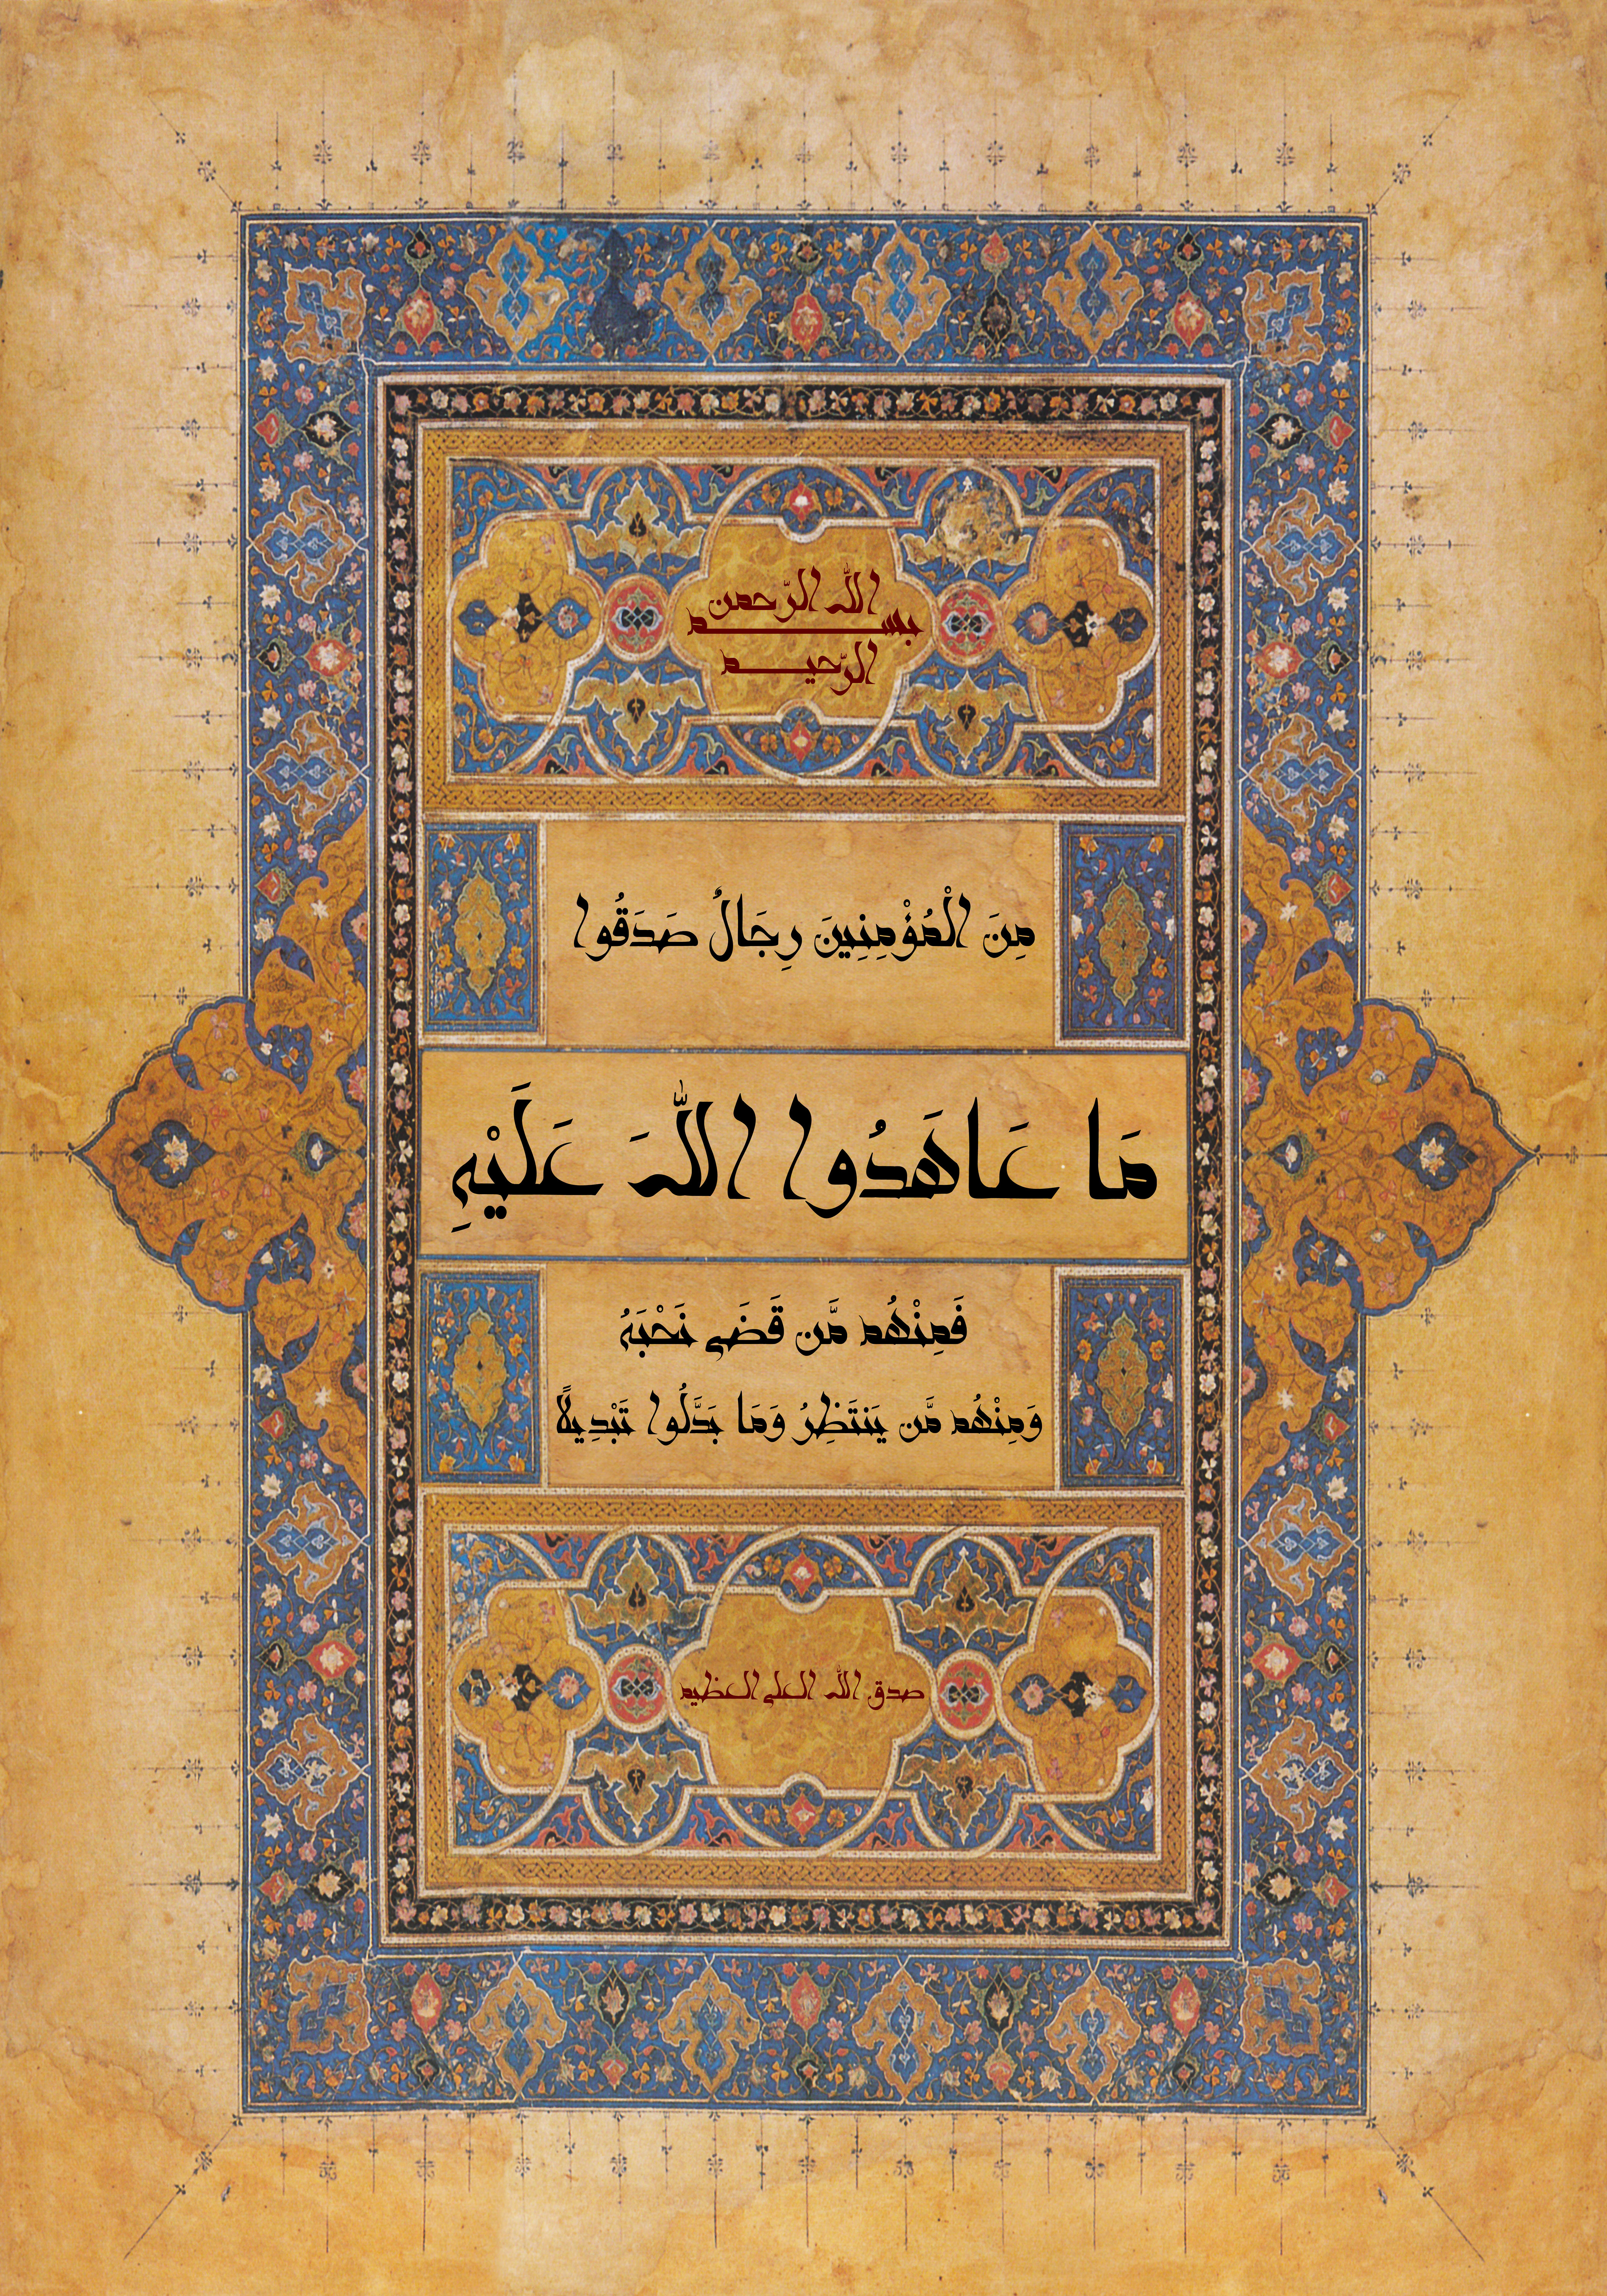 بسم الله الرّحمن
الرّحيم
مِنَ الْمُؤْمِنِينَ رِجَالٌ صَدَقُوا
مَا عَاهَدُوا اللَّهَ عَلَيْهِ
فَمِنْهُم مَّن قَضَى نَحْبَهُ
وَمِنْهُم مَّن يَنتَظِرُ وَمَا بَدَّلُوا تَبْدِيلًا
صدق الله العلي العظيم